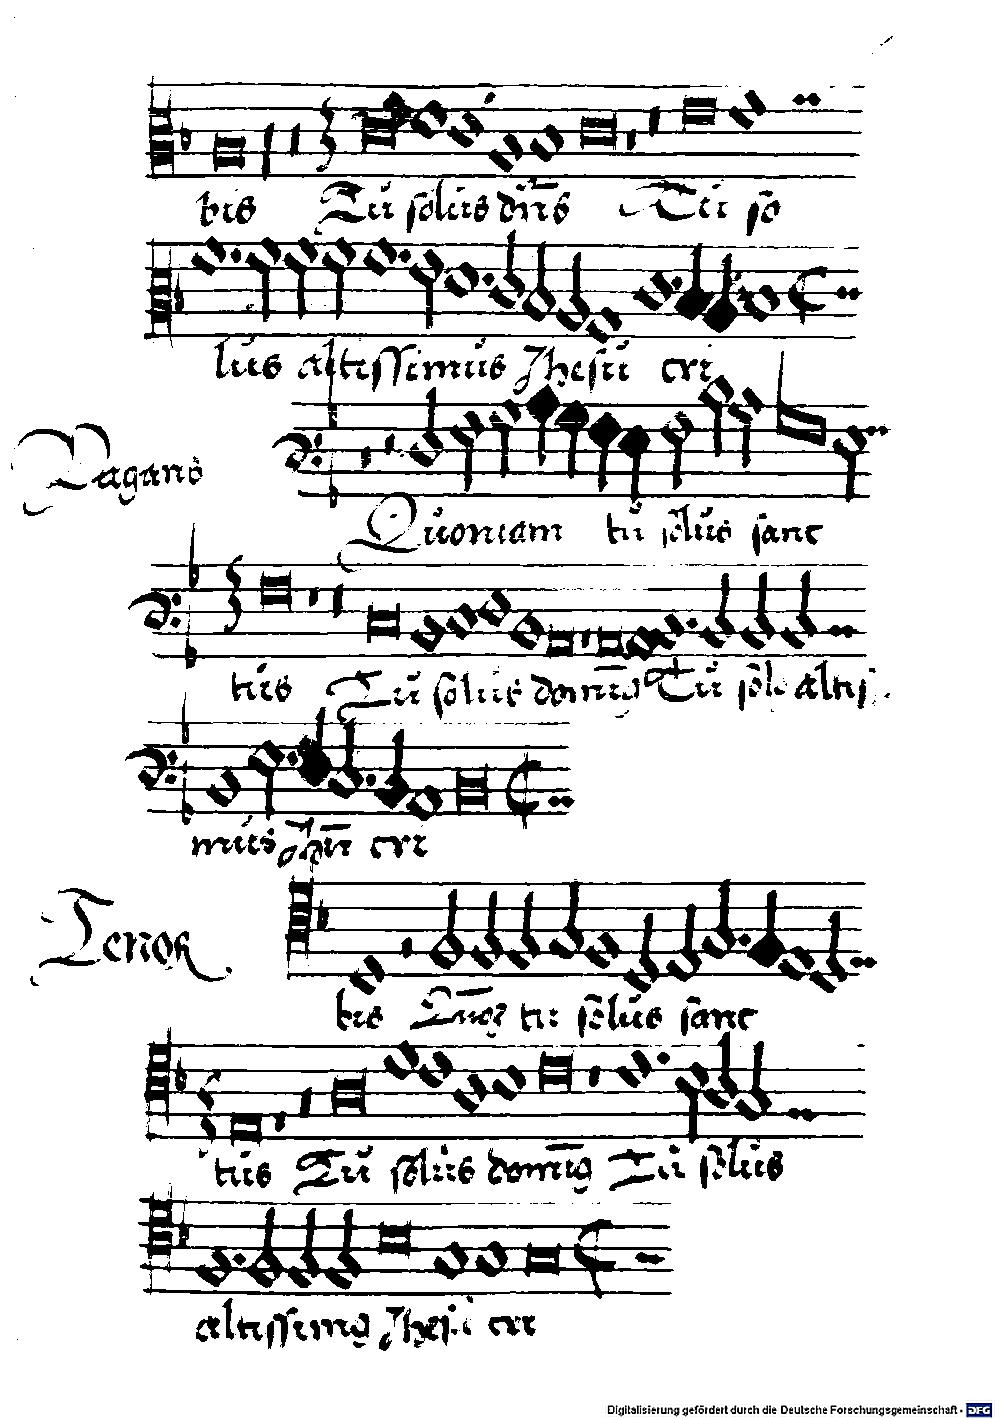 bis Tu solus dñs Tu so
lus altissimus Jhesu cri
Bagans
Quoniam tu solus sanc
tus Tu solus domi Tu sol altis
mus Jhu cri
Tenor
bis tu solus sanc
tus Tu solus domi Tu solus
altissim Jhesu cri
Digitalisierung gefördert durch die Deutsche Forschungsgemeinschaft - DFG